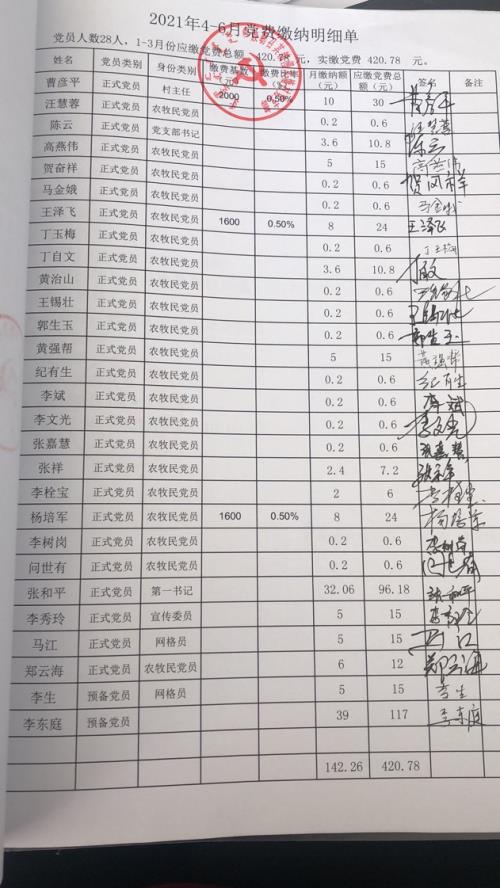 2021年4-6月党费缴纳明细单
党员人数28人，1-3月份应缴党费总额 420.78 元，实缴党费 420.78 元。
姓名 党员类别 身份类别 缴费基数 缴费比率 月缴纳额（元） 应缴党费总额（元） 签名 备注
曹彦平 正式党员 村主任 2000 0.50% 10 30
汪慧蓉 正式党员 农牧民党员 0.2 0.6
陈云 正式党员 党支部书记 3.6 10.8 陈云
高燕伟 正式党员 农牧民党员 5 15 高燕伟
贺奋祥 正式党员 农牧民党员 0.2 0.6
马金娥 正式党员 农牧民党员 0.2 0.6 马金娥
王泽飞 正式党员 农牧民党员 1600 0.50% 8 24 王泽飞
丁玉梅 正式党员 农牧民党员 0.2 0.6 丁玉梅
丁自文 正式党员 农牧民党员 3.6 10.8
黄治山 正式党员 农牧民党员 0.2 0.6
王锡壮 正式党员 农牧民党员 0.2 0.6
郭生玉 正式党员 农牧民党员 0.2 0.6 郭生玉
黄强帮 正式党员 农牧民党员 5 15
纪有生 正式党员 农牧民党员 0.2 0.6 纪有生
李斌 正式党员 农牧民党员 0.2 0.6 李斌
李文光 正式党员 农牧民党员 0.2 0.6 李文光
张嘉慧 正式党员 农牧民党员 0.2 0.6 张嘉慧
张祥 正式党员 农牧民党员 2.4 7.2
李栓宝 正式党员 农牧民党员 2 6
杨培军 正式党员 农牧民党员 1600 0.50% 8 24
李树岗 正式党员 农牧民党员 0.2 0.6
问世有 正式党员 农牧民党员 0.2 0.6
张和平 正式党员 第一书记 32.06 96.18 张和平
李秀玲 正式党员 宣传委员 5 15 李秀玲
马江 正式党员 网格员 5 15 马江
郑云海 正式党员 农牧民党员 6 12 郑云海
李生 预备党员 网格员 5 15 李生
李东庭 预备党员 39 117 李东庭
142.26 420.78